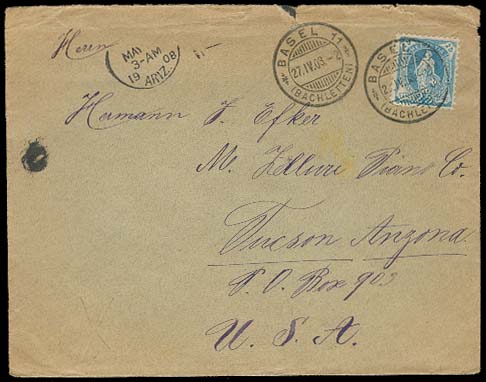 Herrn
MAY
3-AM
1908
ARIZ.
BASEL 11
27.IV.08.-2
(BACHLETTEN)
BASEL 11
(BACHLETTEN)
Hermann J. Efker
M. Zellure Piano Co.
Tucson Arizona
P. O. Box 903
U. S. A.